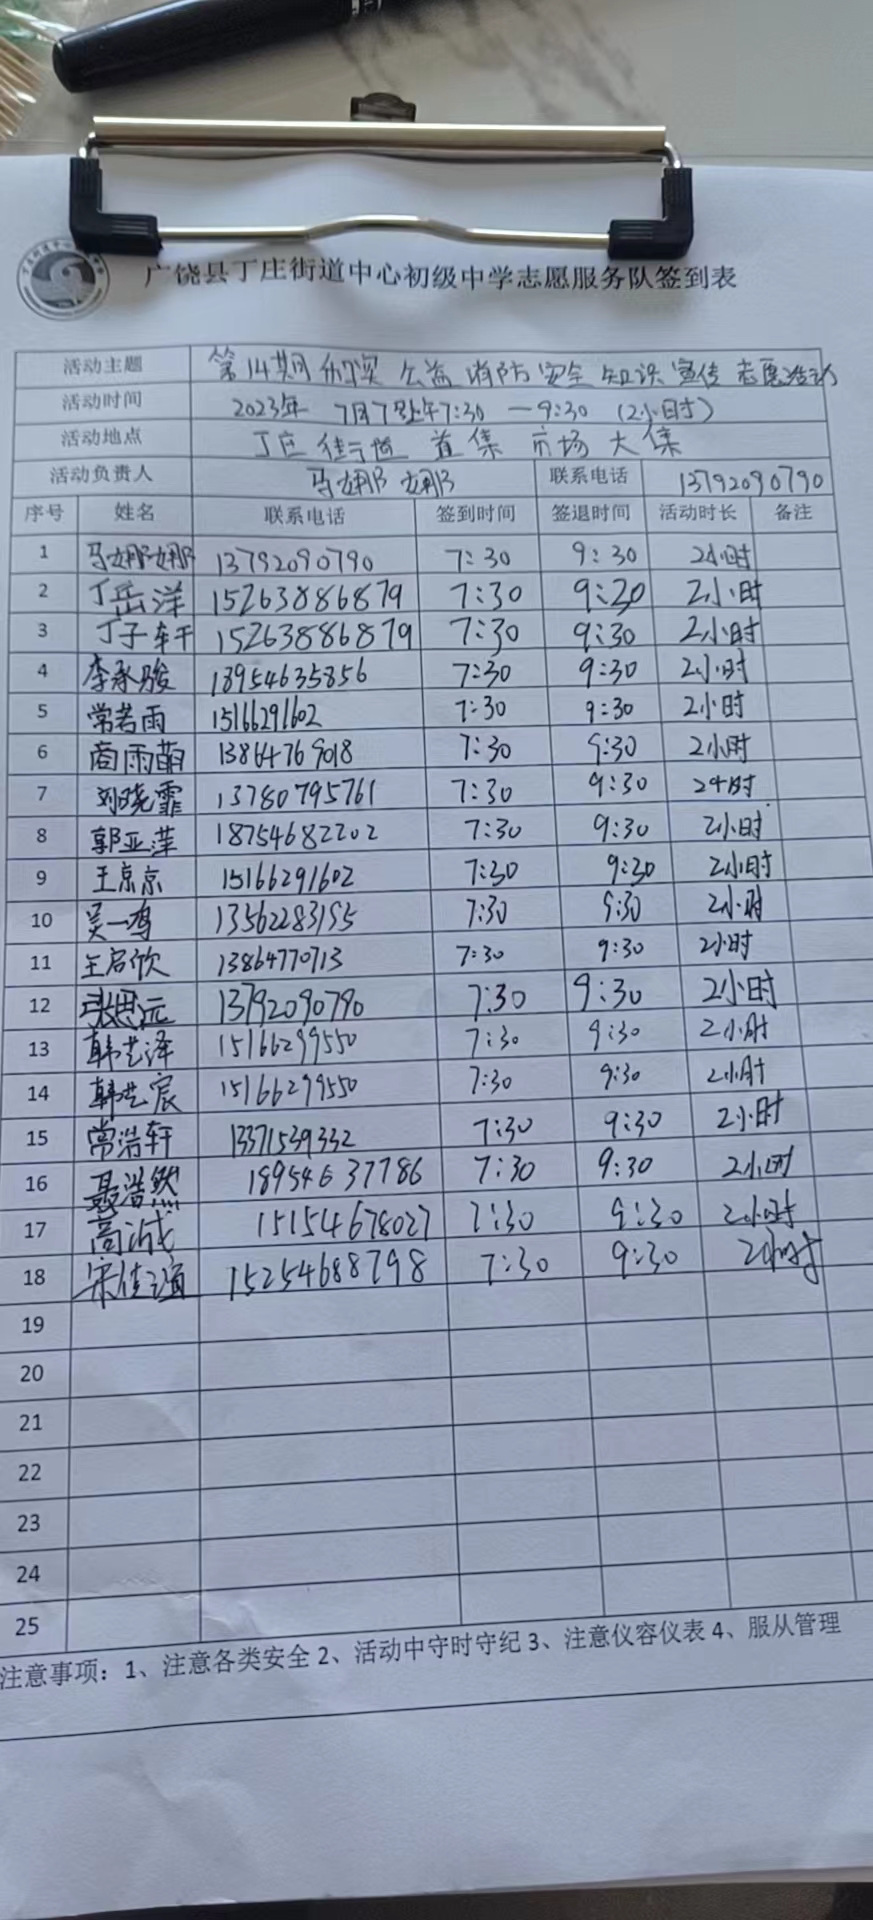 广饶县丁庄街道中心初级中学志愿服务队签到表
活动主题 第14期 公益 消防 安全 知识 宣传 志愿活动
活动时间 2023年 7月7日上午7:30 — 9:30 (2小时)
活动地点 丁庄 街道 直集 市场 大集
活动负责人 马娜娜 联系电话 13792090790
序号 姓名 联系电话 签到时间 签退时间 活动时长 备注
1 马娜娜 13792090790 7:30 9:30 2小时
2 丁岳洋 15263886879 7:30 9:20 2小时
3 丁子轩 15263886879 7:30 9:30 2小时
4 李承骏 18954635856 7:30 9:30 2小时
5 常若雨 15166291602 7:30 9:30 2小时
6 商雨萌 13864769018 7:30 9:30 2小时
7 刘晓霏 13780795761 7:30 9:30 2小时
8 郭亚萍 18754682202 7:30 9:30 2小时
9 王京京 15166291602 7:30 9:30 2小时
10 吴一鸣 13562283195 7:30 9:30 2小时
11 王启欣 13864770713 7:30 9:30 2小时
12 张思远 13792090790 7:30 9:30 2小时
13 韩艺泽 15166299550 7:30 9:30 2小时
14 韩艺宸 15166299550 7:30 9:30 2小时
15 常浩轩 13371539332 7:30 9:30 2小时
16 聂浩然 18954637786 7:30 9:30 2小时
17 高诚 15154678027 7:30 9:30 2小时
18 宋佳 15254688798 7:30 9:30 2小时
19
20
21
22
23
24
25
注意事项：1、注意各类安全 2、活动中守时守纪 3、注意仪容仪表 4、服从管理